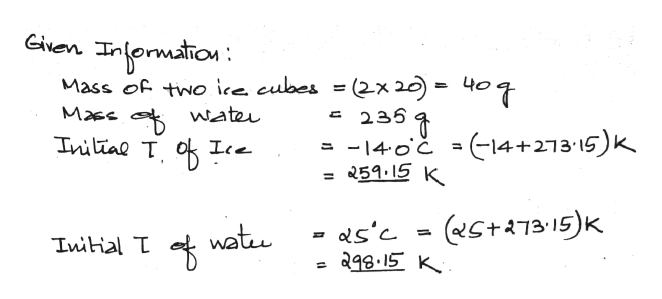 Given Information :
Mass of two ice cubes = (2 x 20) = 40 g
Mass of water = 235 g
Initial T. of Ice = -14.0°C = (-14+273.15) K
= 259.15 K
Initial T of water = 25°C = (25+273.15) K
= 298.15 K.